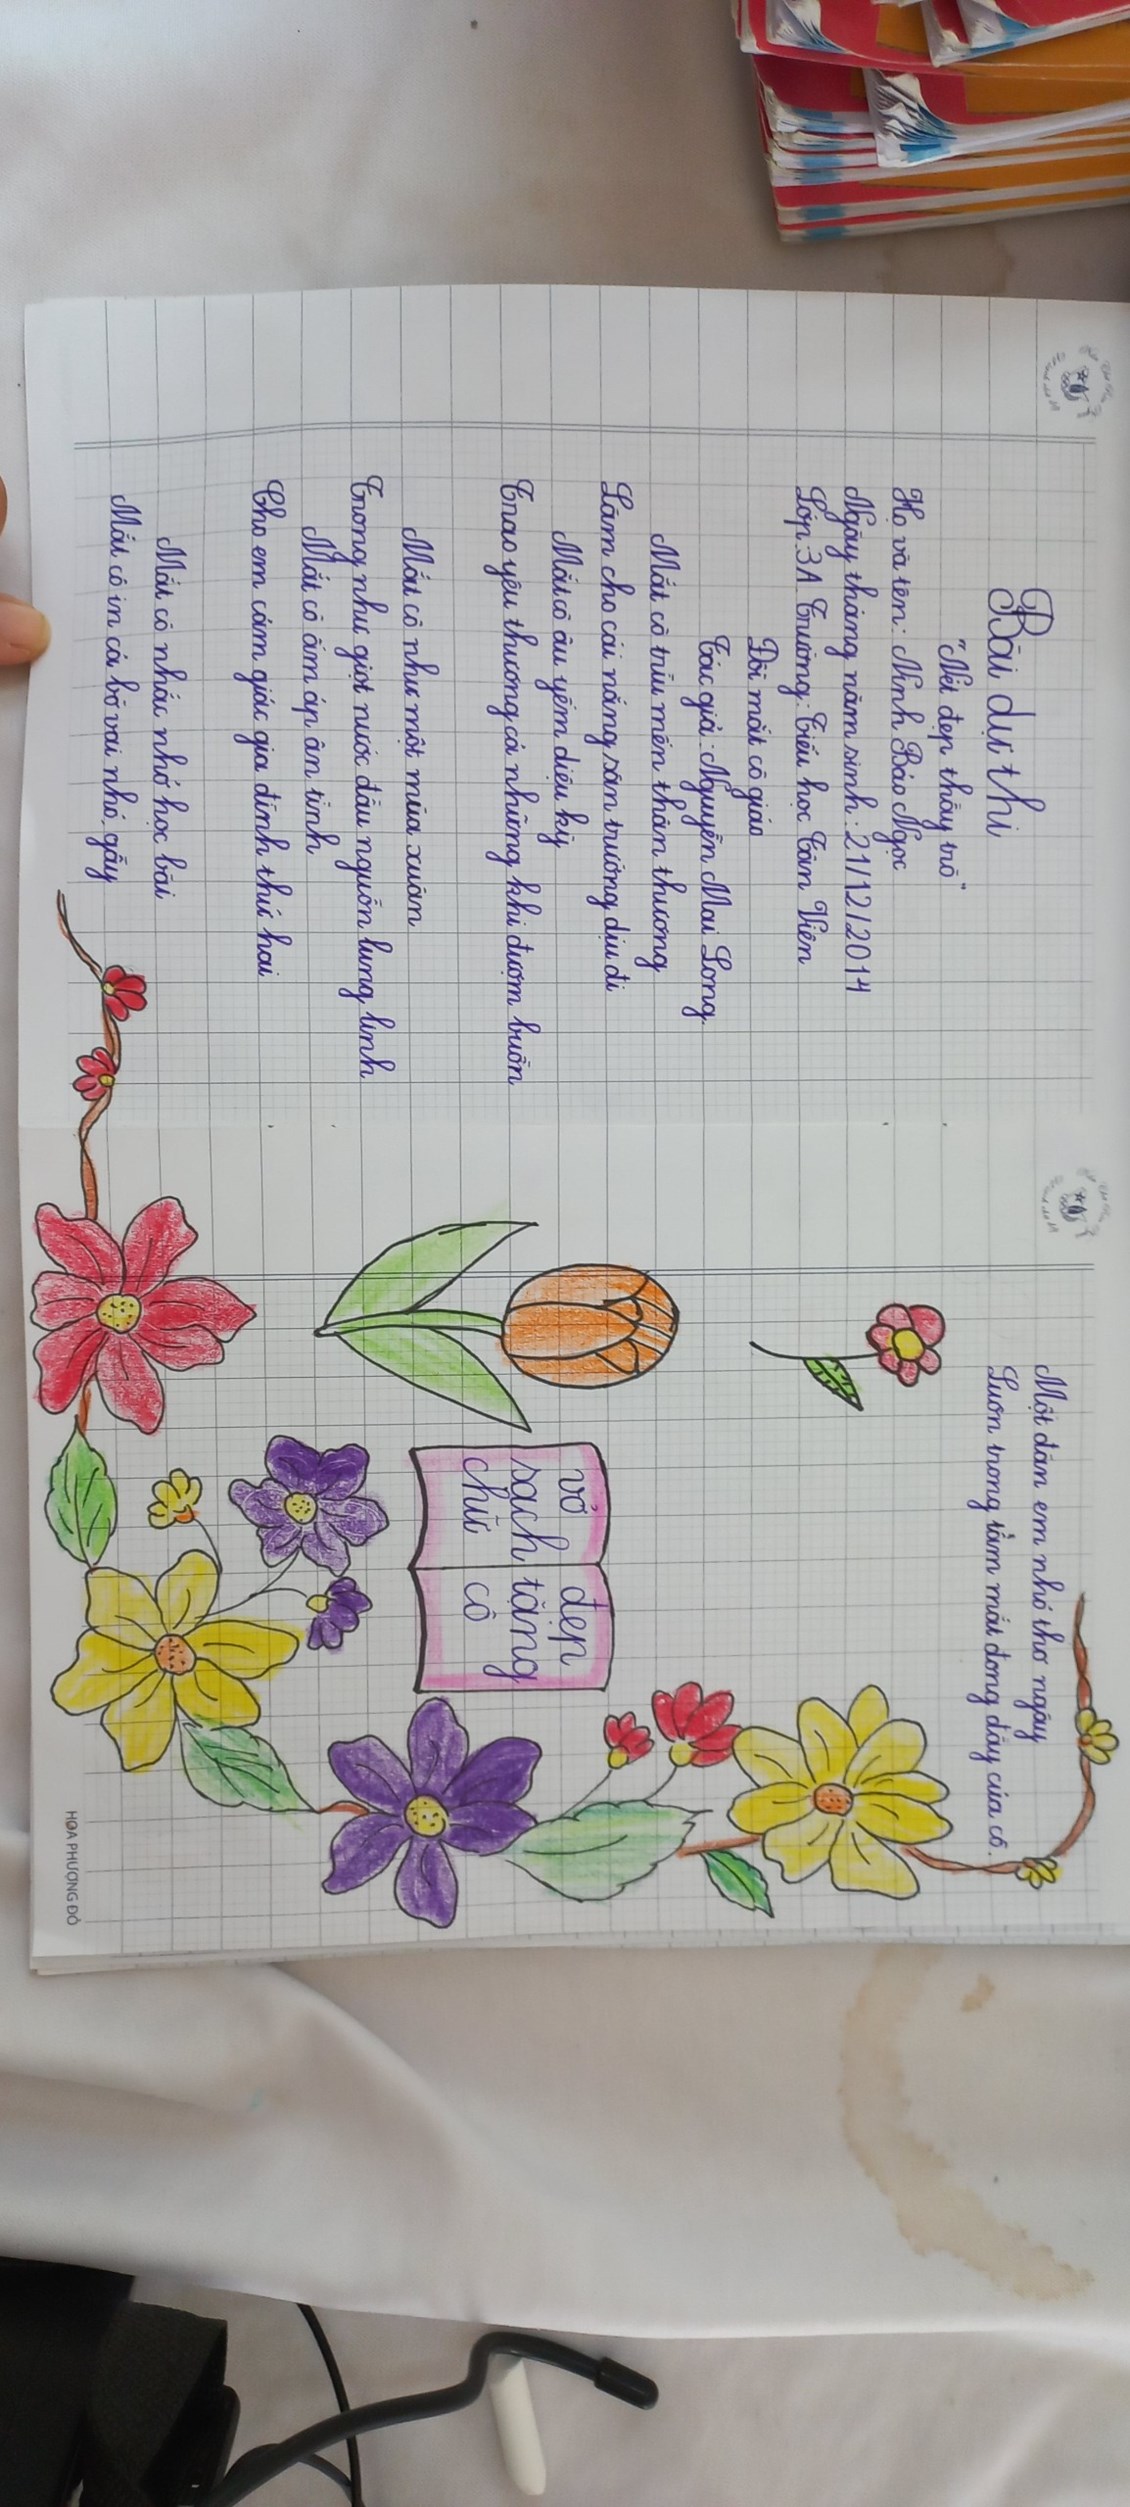 Bài dự thi
"Nét đẹp thầy trò"
Họ và tên: Ninh Bảo Ngọc
Ngày tháng năm sinh: 21/12/2014
Lớp: 3A Trường: Tiểu học Tân Viên
Đôi mắt cô giáo
Tác giả: Nguyễn Mai Long.
Mắt cô trìu mến thân thương
Làm cho cái nắng sân trường dịu đi
Mắt cô âu yếm diệu kỳ
Trao yêu thương cả những khi đượm buồn
Mắt cô như một mùa xuân
Trong như giọt nước đầu nguồn lung linh
Mắt cô ấm áp ân tình
Cho em cảm giác gia đình thứ hai
Mắt cô nhắc nhở học bài
Mắt cô in cả bờ vai nhỏ, gầy
Một đàn em nhỏ thơ ngây
Luôn trong tầm mắt đong đầy của cô.
vở đẹp
sạch tặng
chữ cô
HOA PHƯỢNG ĐỎ